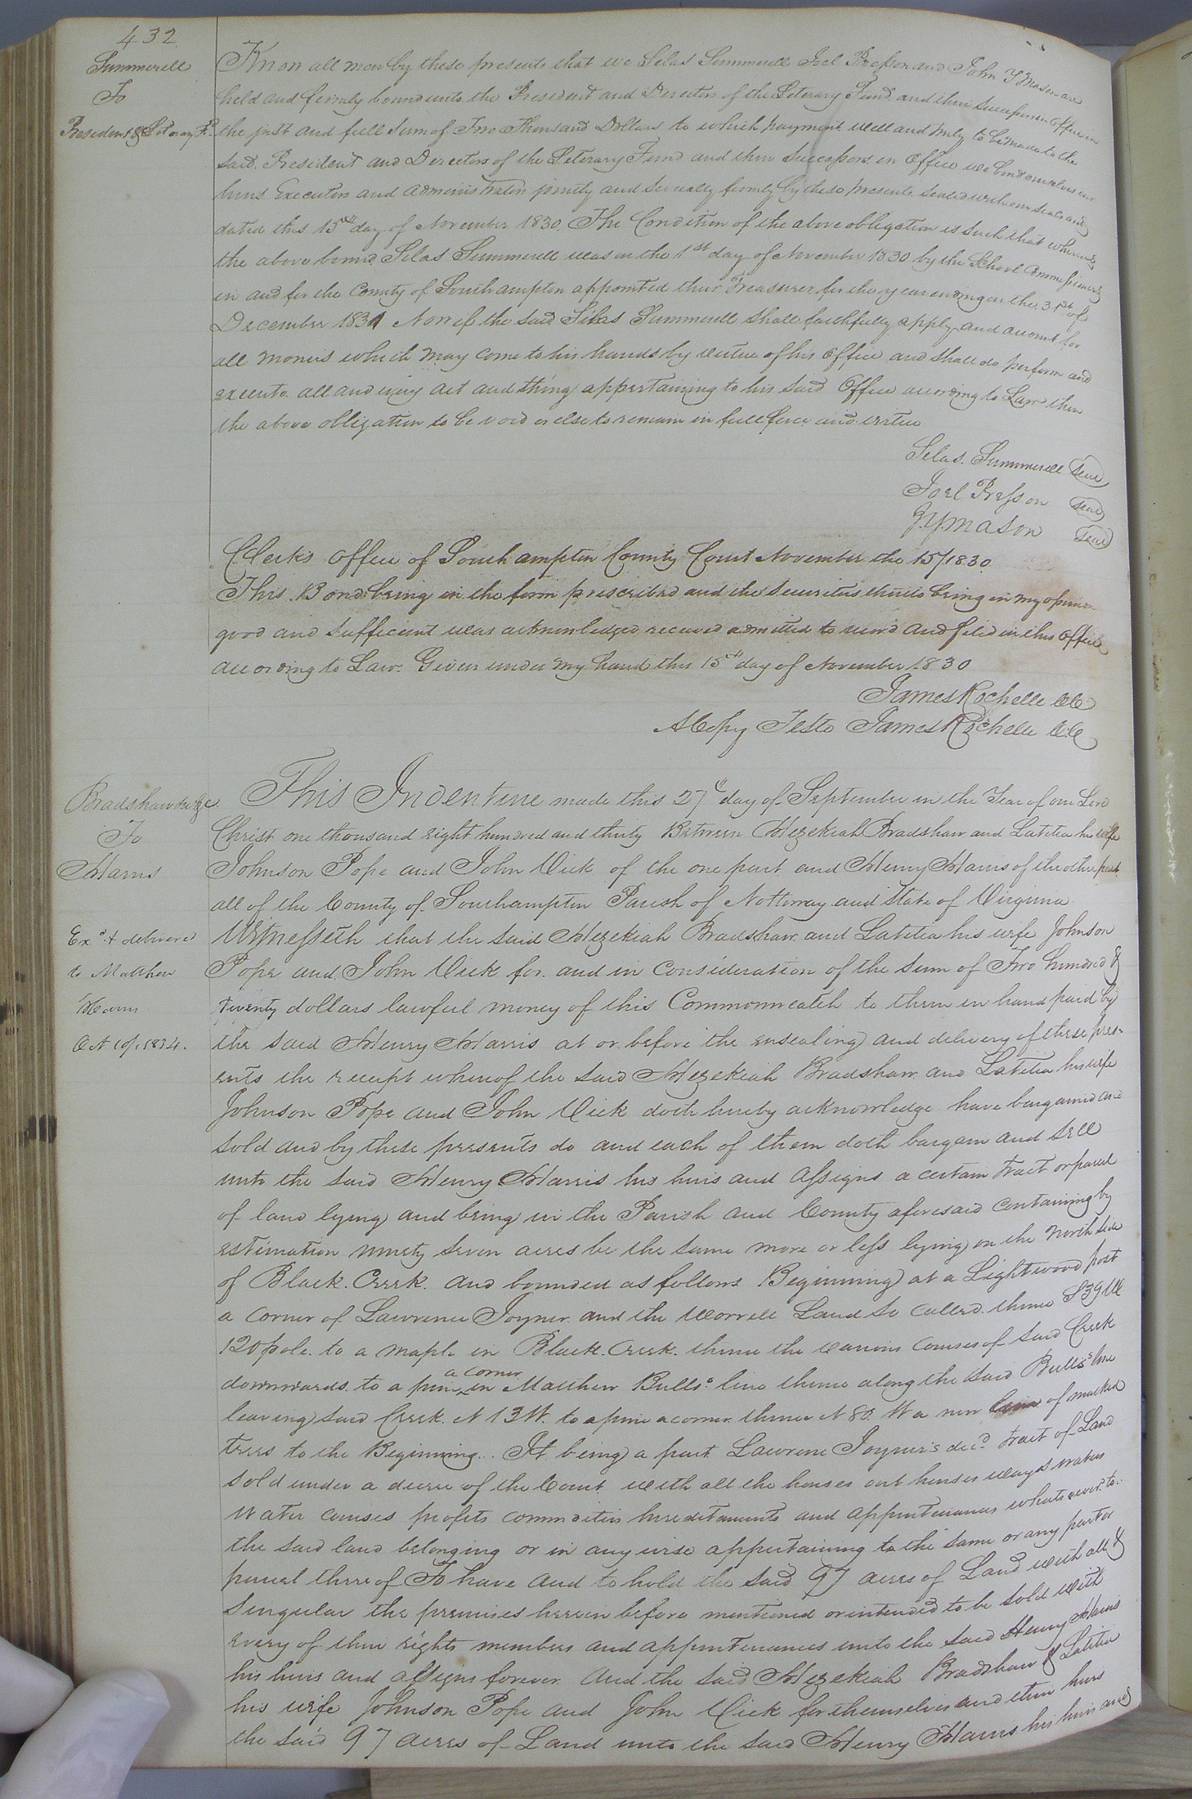 432
Summerell
To
President & Literary Fd
Know all men by these presents that we Silas Summerell Joel Presson and John Y Mason are
held and firmly bound unto the President and Director of the Literary Fund and their Successors in Office in
the just and full Sum of Two Thousand Dollars to which payment well and truly to be made to the
said President and Directors of the Literary Fund and their Successors in Office we bind ourselves our
heirs Executors and administrators jointly and severally firmly by these presents sealed with our seals and
dated this 15th day of November 1830. The Condition of the above obligation is such that whereas
the above bound Silas Summerell was on the 1st day of November 1830 by the School Commissioners
in and for the County of Southampton appointed their Treasurer for the year ending on the 31st of
December 1831 Now if the said Silas Summerell shall faithfully apply and account for
all moneys which may come to his hands by virtue of his office and shall do perform and
execute all and every act and thing appertaining to his said Office according to Law then
the above obligation to be void or else to remain in full force and virtue
Silas. Summerell (seal)
Joel Presson (seal)
J Y Mason (seal)
Clerks Office of Southampton County Court November the 15/1830.
This Bond being in the form prescribed and the Securities thereto being in my opinion
good and sufficient was acknowledged received admitted to record and filed in this Office
according to Law. Given under my hand this 15th day of November 1830
James Rochelle CC
A Copy Teste James Rochelle CC
Bradshaw &c
To
Harris
Exd & delivered
to Matthew
Oct 10/. 1834.
This Indenture made this 27th day of September in the Year of our Lord
Christ one thousand eight hundred and thirty Between Hezekiah Bradshaw and Latitia his wife
Johnson Pope and John Vick of the one part and Henry Harris of the other part
all of the County of Southampton Parish of Nottoway and State of Virginia
Witnesseth that the said Hezekiah Bradshaw and Latitia his wife Johnson
Pope and John Vick for and in consideration of the sum of Two hundred &
twenty dollars lawful money of this Commonwealth to them in hand paid by
the said Henry Harris at or before the ensealing and delivery of these pres-
ents the receipt whereof the said Hezekiah Bradshaw and Latitia his wife
Johnson Pope and John Vick doth hereby acknowledge have bargained and
sold and by these presents do and each of them doth bargain and sell
unto the said Henry Harris his heirs and assigns a certain tract or parcel
of land lying and being in the Parish and County aforesaid containing by
estimation ninety seven acres be the same more or less lying on the North side
of Black. Creek. and bounded as follows Beginning at a Lightwood post
a corner of Lawrence Joyner and the Worrell Land so called. thence S 39 W
120 pole. to a maple in Black. Creek. thence the various courses of said Creek
downwards. to a pine a corner in Matthew Bulls. line thence along the said Bulls's line
leaving said Creek N 13 W. to a pine a corner thence N 80. W a new line of marked
trees to the Beginning.. It being a part Lawrence Joyner's decd. tract of Land
sold under a decree of the Court with all the houses out houses ways waters
water courses profits commodities hereditaments and appurtenances whatsoever. to.
the said land belonging or in any wise appertaining to the same or any part or
parcel thereof To have and to hold the said 97 acres of Land with all &
singular the premises herein before mentioned or intended to be sold with
every of their rights members and appurtenances unto the said Henry Harris
his heirs and assigns forever. and the said Hezekiah Bradshaw & Latitia
his wife Johnson Pope and John Vick for themselves and their heirs
the said 97 acres of Land unto the said Henry Harris his heirs and